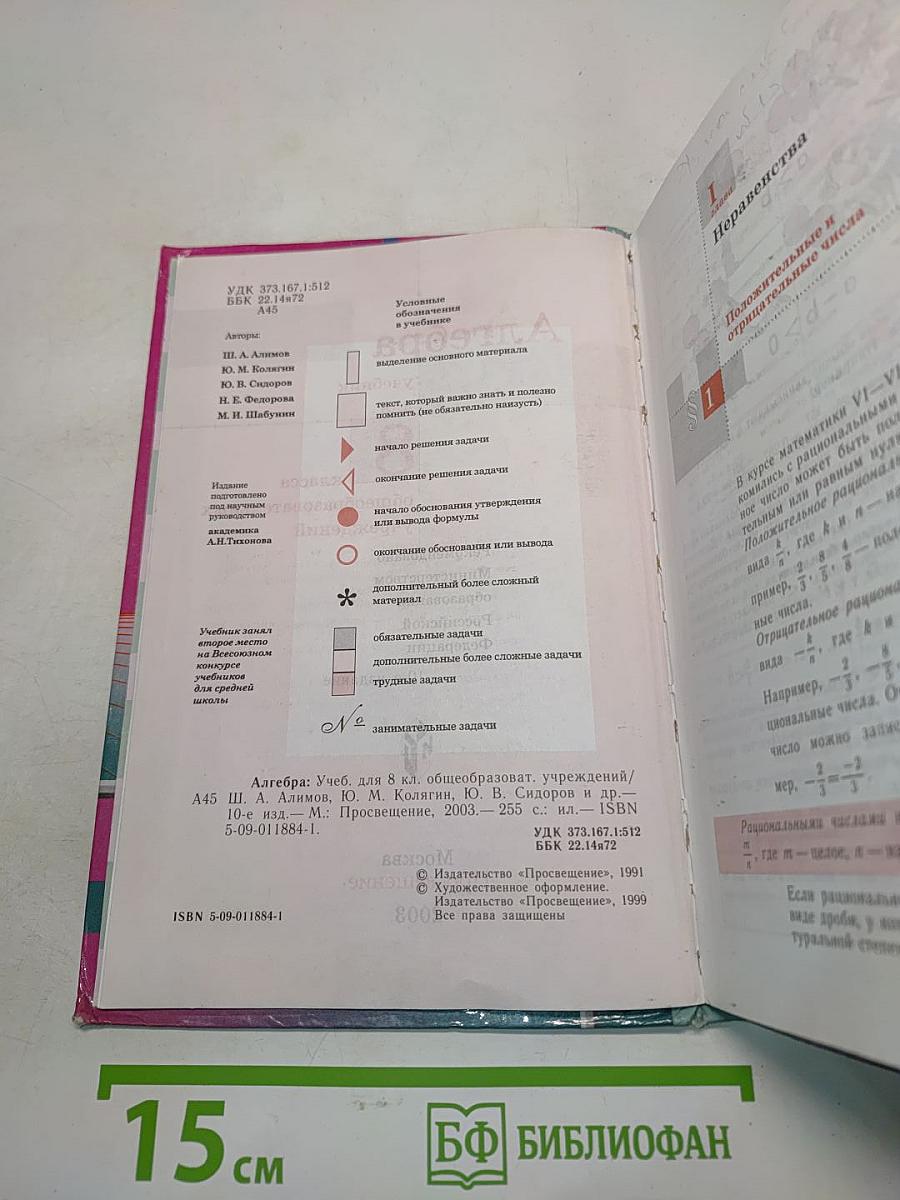 УДК 373.167.1:512
ББК 22.14я72
А45
Авторы:
Ш. А. Алимов
Ю. М. Колягин
Ю. В. Сидоров
Н. Е. Федорова
М. И. Шабунин
Издание
подготовлено
под научным
руководством
академика
А.Н.Тихонова
Учебник занял
второе место
на Всесоюзном
конкурсе
учебников
для средней
школы
Условные
обозначения
в учебнике
выделение основного материала
текст, который важно знать и полезно
помнить (не обязательно наизусть)
начало решения задачи
окончание решения задачи
начало обоснования утверждения
или вывода формулы
окончание обоснования или вывода
дополнительный более сложный
материал
обязательные задачи
дополнительные более сложные задачи
трудные задачи
№ занимательные задачи
Алгебра: Учеб. для 8 кл. общеобразоват. учреждений/
А45 Ш. А. Алимов, Ю. М. Колягин, Ю. В. Сидоров и др.—
10-е изд.— М.: Просвещение, 2003.— 255 с.: ил.— ISBN
5-09-011884-1.
УДК 373.167.1:512
ББК 22.14я72
© Издательство «Просвещение», 1991
© Художественное оформление.
Издательство «Просвещение», 1999
Все права защищены
ISBN 5-09-011884-1
I
глава
Неравенства
Положительные и
отрицательные числа
§ 1
В курсе математики VI—VI
комились с рациональными
ное число может быть пол
тельным или равным нул
Положительное рациональ
вида k/n, где k и n — на
пример, 2/3, 8/5, 4/8 — поло
ные числа.
Отрицательное рациона
вида −k/n, где k и
Например, −2/3, −8/5,
циональные числа. О
число можно запис
мер, −2/3=−2/3.
Рациональными числами
m/n, где m — целое, n — на
Если рациональн
виде дроби, у
туральной степен
15 см
БФ БИБЛИОФАН